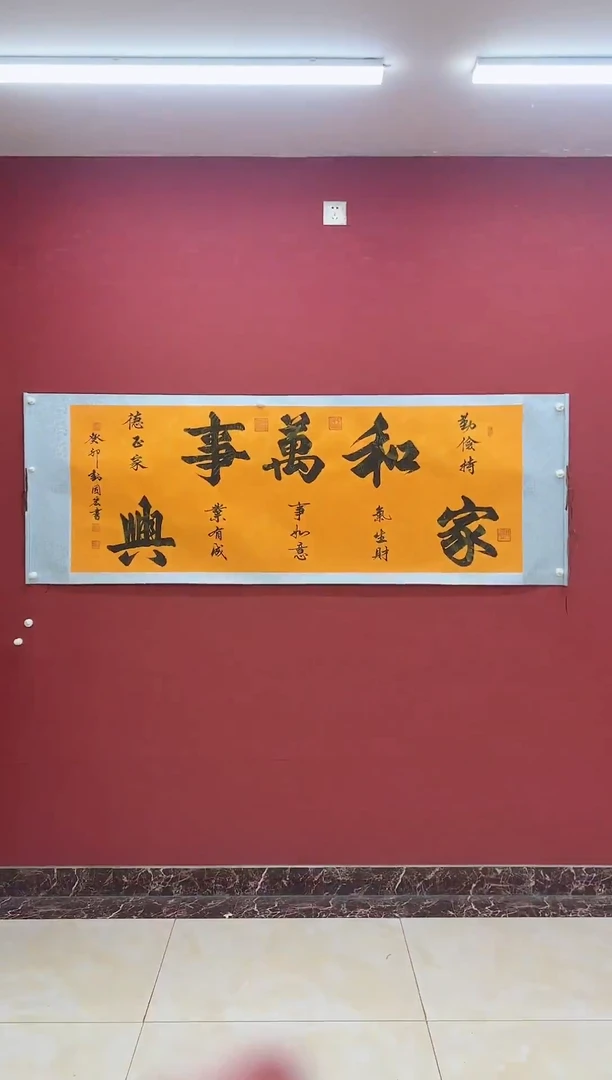 勤儉持
家
和
氣生財
萬
事如意
事
業有成
德正家
興
癸卯
書